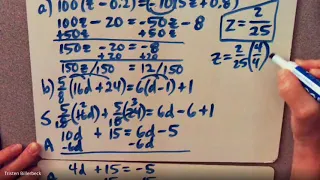 a) 100(z - 0.2) = -10(5z + 0.8)
100z - 20 = -50z - 8
+50z +50z
150z - 20 = -8
+20 +20
150z/150 = 12/150
z = 2/25
z = 2/25 (4/4)
b) 5/8 (16d + 24) = 6(d - 1) + 1
S 5/8 (16d) + 5/8 (24) = 6d - 6 + 1
10d + 15 = 6d - 5
A -6d -6d
4d + 15 = -5
A
Tristen Billerbeck